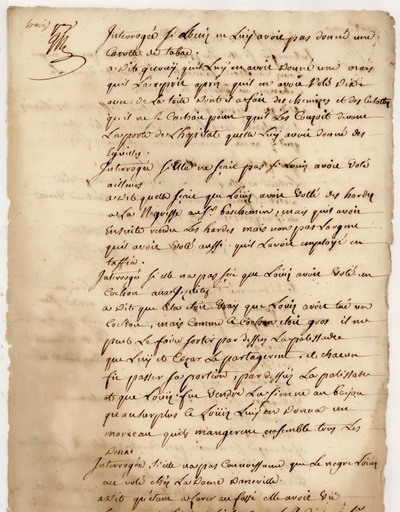 Interrogée si Louis ne Luy avoit pas donné une
Carotte de tabac.
a Dit que ouy, quil Luy en avoit Donné une mais
quil La reprit apres, quil en avoit Volé Dix
avec de La toile Dont il a fait des chemises et des Culottes
quil ne se Cachoit point quil Les Cousoit devant
La porte de Lhopital quelle Luy avoit donné des
Eguilles.
Interrogée si Elle ne sçait pas si Louis avoit Volé
ailleurs
a Dit quelle sçait que Louis avoit Vollé des hardes
a La Negresse au Sr. baschemin, mais quil avoit
Ensuite rendu Les hardes mais non pas Largent
quil avoit Volé aussi. quil Lavoit employé en
taffia.
Interrogée si elle na pas sçu que Louis avoit Volé un
Cochon
a Dit que Cela Etoit Vray que Louis avoit tué un
Cochon, mais Comme Ce Cochon etoit gros il ne
peut Le faire sortir par dessus La palissade
que Luy et Cezar Le partagerent, et chacun
fit passer sa portion, par dessus La palissade
et que Louis fut vendre La sienne au bajou
qu'au surplus Ce Louis Luy en Donna un
morceau quils mangerent ensemble tous Les
Deux.
Interrogée si elle na pas Connoissance que Le negre Louis
au volé chez La Dame
a Dit qu'etant a Laver au fossé elle avoit Vû